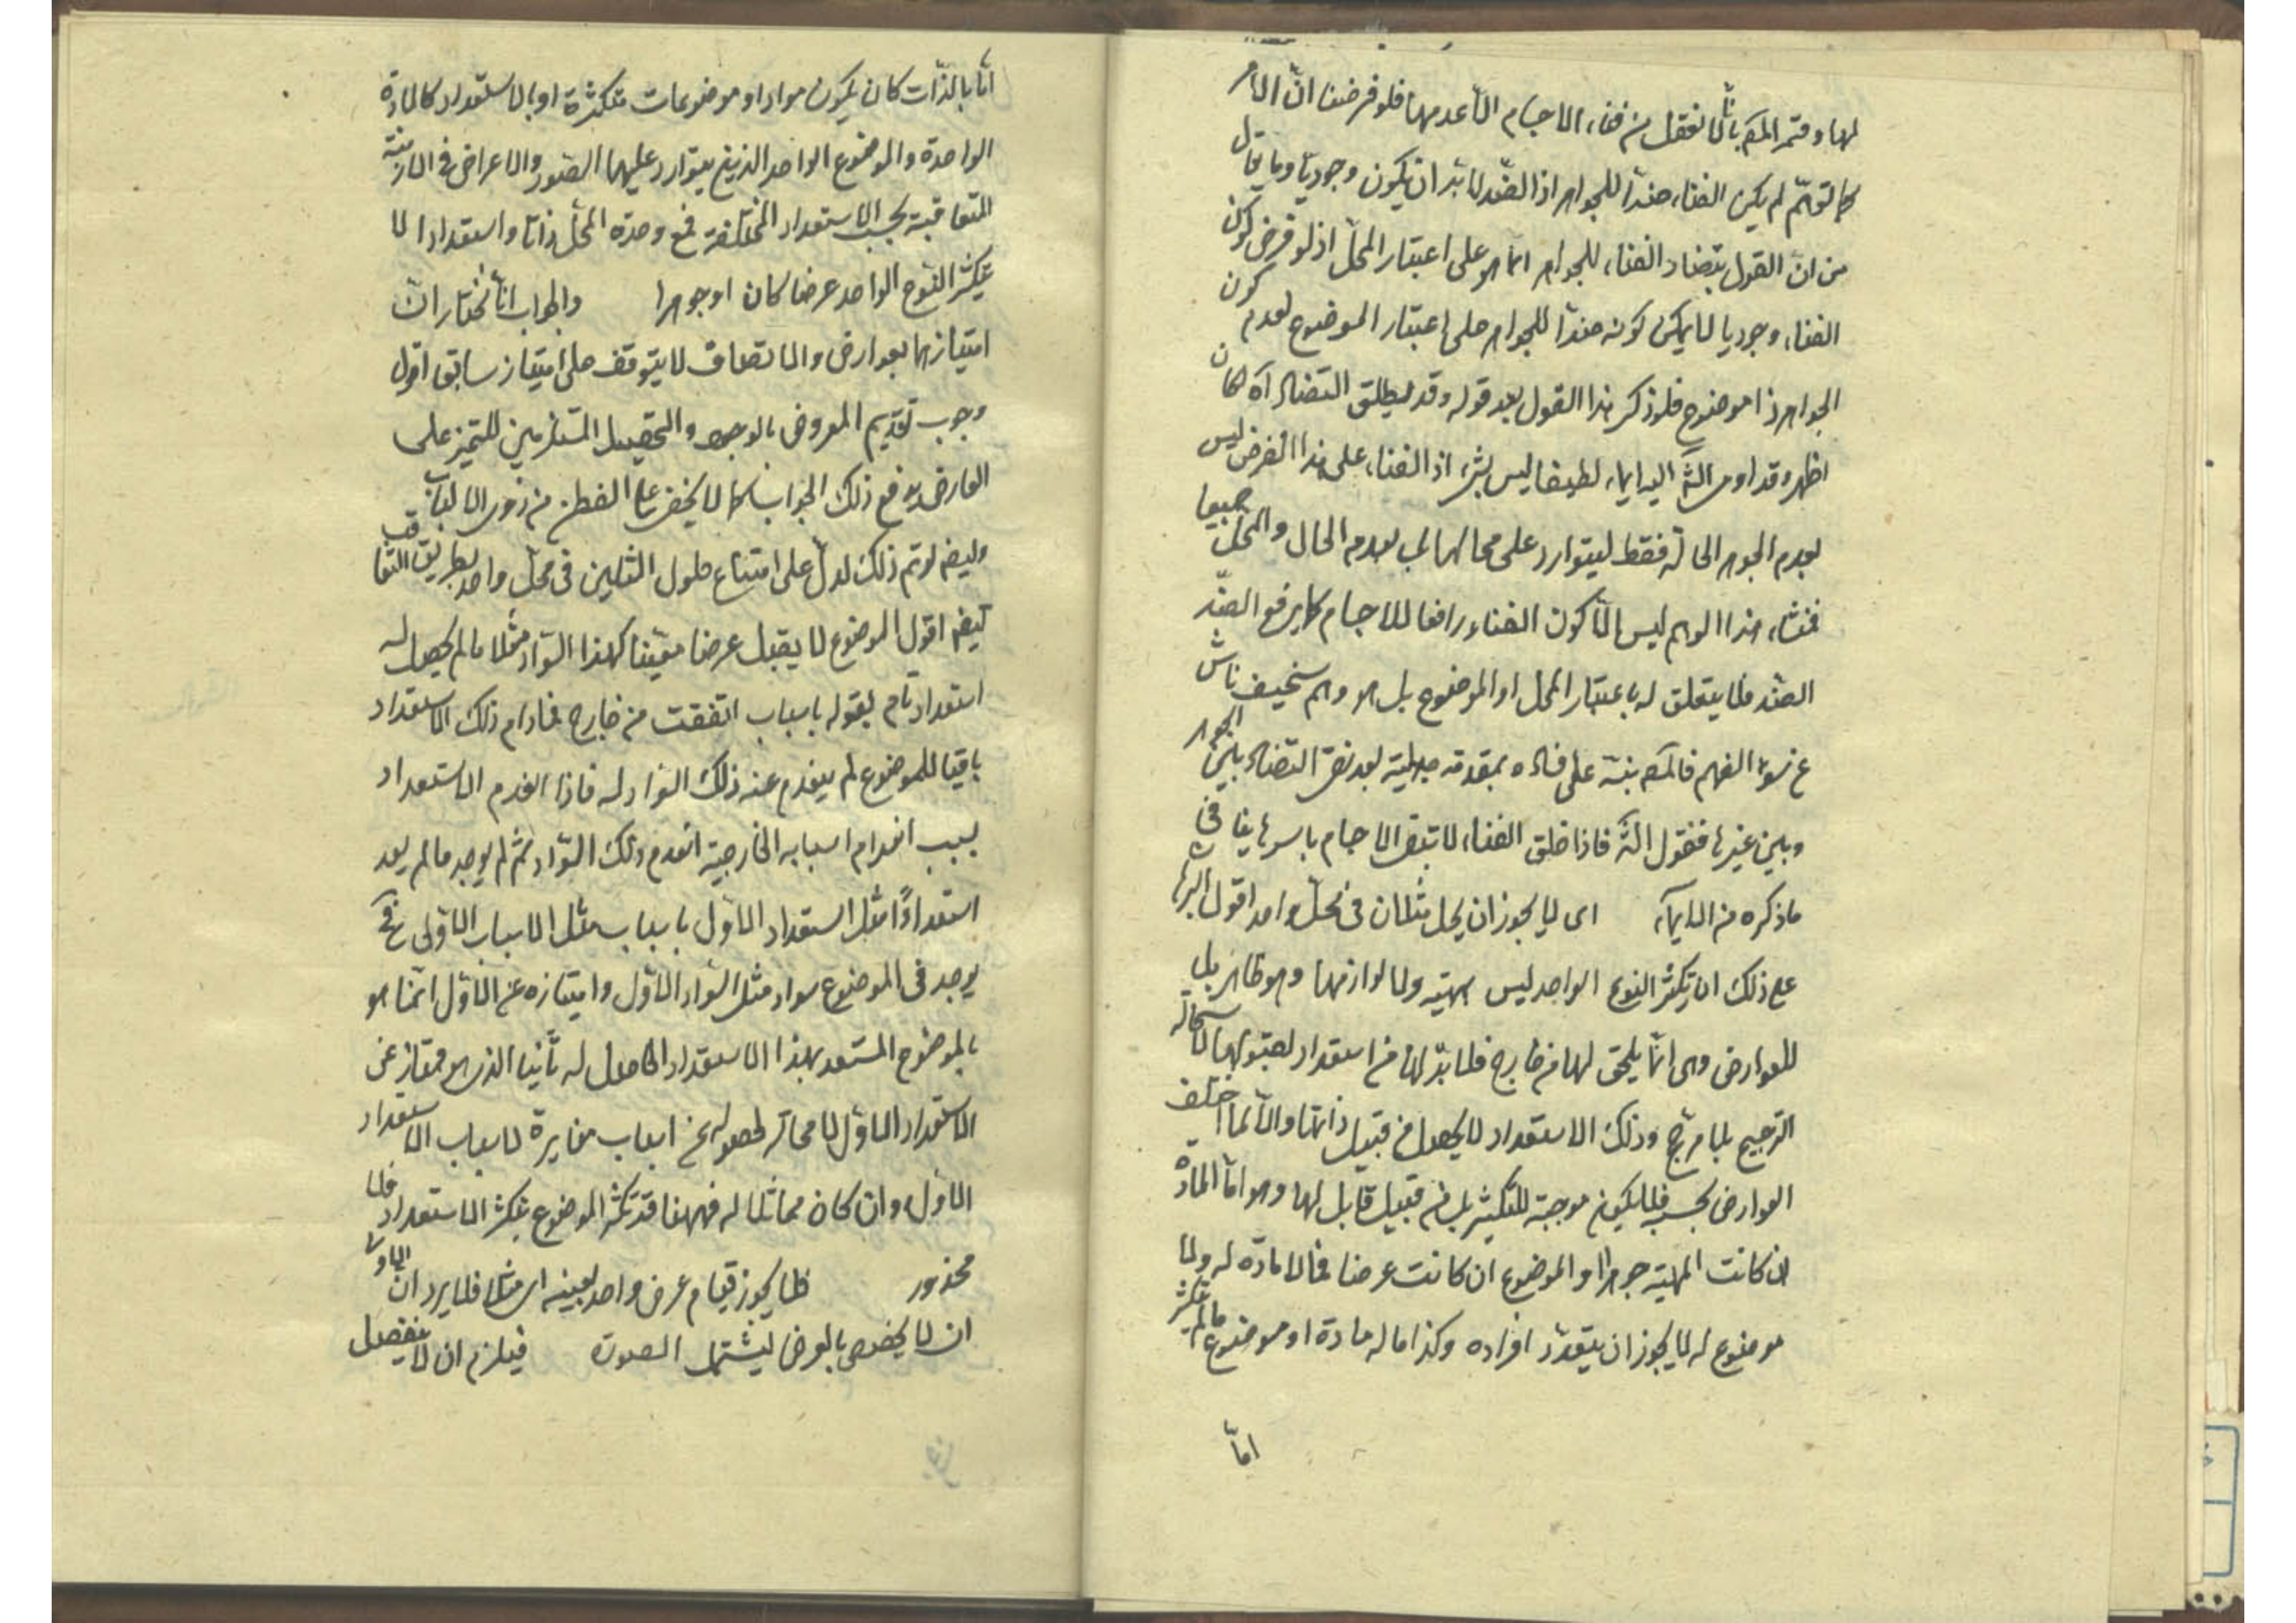 لها وفسر المص بانا لا نعقل من فناء الاجسام الا عدمها فلو فرضنا ان الامر
كما توهّم لم يكن الفناء ضدا للجواهر اذ الضد لا بد ان يكون وجوديا وما يقال
من ان القول بتضاد الفناء للجواهر انما هو على اعتبار المحل اذ لو فرض كون
الفناء وجوديا لا يمكن كونه ضدا للجواهر على اعتبار الموضوع لعدم كون
الجواهر ذا موضوع فلو ذكر هذا القول بعد قوله وقد يطلق التضاد آه لكان
اظهر وقد اومى الش اليه ايماء لطيفا ليس بشيء اذ الفناء على هذا الفرض ليس
لعدم الجوهر الحالة فقط ليتوارد على محالها بل لعدم الحال والمحل جميعا
فمنشاء هذا الوهم ليس الا كون الفناء رافعا للاجسام كما يرفع الضد
الضد فلا يتعلق له باعتبار المحل او الموضوع بل هو وهم سخيف ناش
عن سوء الفهم فالمص بنه على فساده بمقدمة جدلية بعد نفى التضاد بين الجواهر
وبين غيرها فنقول الش فاذا خلق الفناء لا تبقى الاجسام باسرها
ما ذكره من الايماء اى لا يجوز ان يحل مثلان فى محل واحد اقول البرهان
على ذلك ان تكثر النوع الواحد ليس لمهيته ولا لوازمها وهو ظاهر بل
للعوارض وهى انما يلحق لها من خارج فلا بد لها من استعداد لقبولها لاستحالة
الترجيح بلا مرجح وذلك الاستعداد لا يحصل من قبل ذاتها والا لما اختلف
العوارض بحسبه فلا يكون موجبة للتكثير بل من قبل قابل لها وهو اما المادة
ان كانت المهية جوهرا او الموضوع ان كانت عرضا فما لا مادة له ولا
موضوع له لا يجوز ان يتعدد افراده وكذا ما له مادة او موضوع ما لم يتكثر
اما
اما بالذات كان يكون مواد او موضوعات متكثرة او بالاستعداد كالمادة
الواحدة والموضوع الواحد الذين يتوارد عليهما الصور والاعراض فى الازمنة
المتعاقبة بحسب الاستعداد المختلفة فمع وحدة المحل ذاتا واستعدادا لا
يتكثر النوع الواحد عرضا كان او جوهرا والجواب انا نختار ان
امتيازهما بعوارض والاتصاف لا يتوقف على امتياز سابق اقول
وجوب تقديم المعروض بالوجود والتحصيل المستلزمين للتميز على
العارض يدفع ذلك الجواب كما لا يخفى على الفطن من ذوى الالباب
وايضا لو تم ذلك لدل على امتناع حلول المثلين فى محل واحد بطريق التعاقب
ايضا اقول الموضوع لا يقبل عرضا معينا كهذا السواد مثلا ما لم يحصل له
استعداد تام لقوله باسباب اتفقت من خارج فما دام ذلك الاستعداد
باقيا للموضوع لم ينعدم عنه ذلك السواد له فاذا انعدم الاستعداد
بسبب انعدام اسبابه الخارجية انعدم ذلك السواد ثم لم يوجد ما لم يعد
استعدادًا مثل استعداد الاول باسباب مثل الاسباب الاولى فح
يوجد فى الموضوع سواد مثل السواد الاول وامتيازه عن الاول انما هو
بالموضوع المستعد بهذا الاستعداد الحاصل له ثانيا الذى هو ممتاز عن
الاستعداد الاول لا محالة لحصوله عن اسباب مغايرة لاسباب الاستعداد
الاول وان كان مماثلا له فههنا قد تكثر الموضوع بتكثر الاستعداد فلا
محذور فلا يجوز قيام عرض واحد بعينه اى مثلا فلا يرد ان الاولى
ان لا يخصص بالعرض ليشتمل الصورة فيلزم ان لا ينفصل